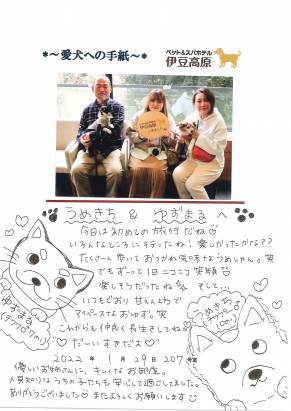 *～愛犬への手紙～*
ペット&スパホテル
伊豆高原
うめきち & ゆずまる へ
今日は初めての旅行だね
いろんなところに行ったね! 楽しかったかな??
たくさん歩いておつかれ気味なうめしゃん。笑
でもずーっと1日ニコニコ笑顔
楽しそうだったね そして...
いつもどおり甘えん坊で
マイペースなおゆず。笑
これからも仲良く長生きしてね
だいすきだよ♡
ゆずまる
うめきち
2022年 1月29日 207号室
優しいお姉さんに、キレイなお部屋。
人見知りなうちの子たちも安心して過ごしてました。
ありがとうございました またよろしくお願いします